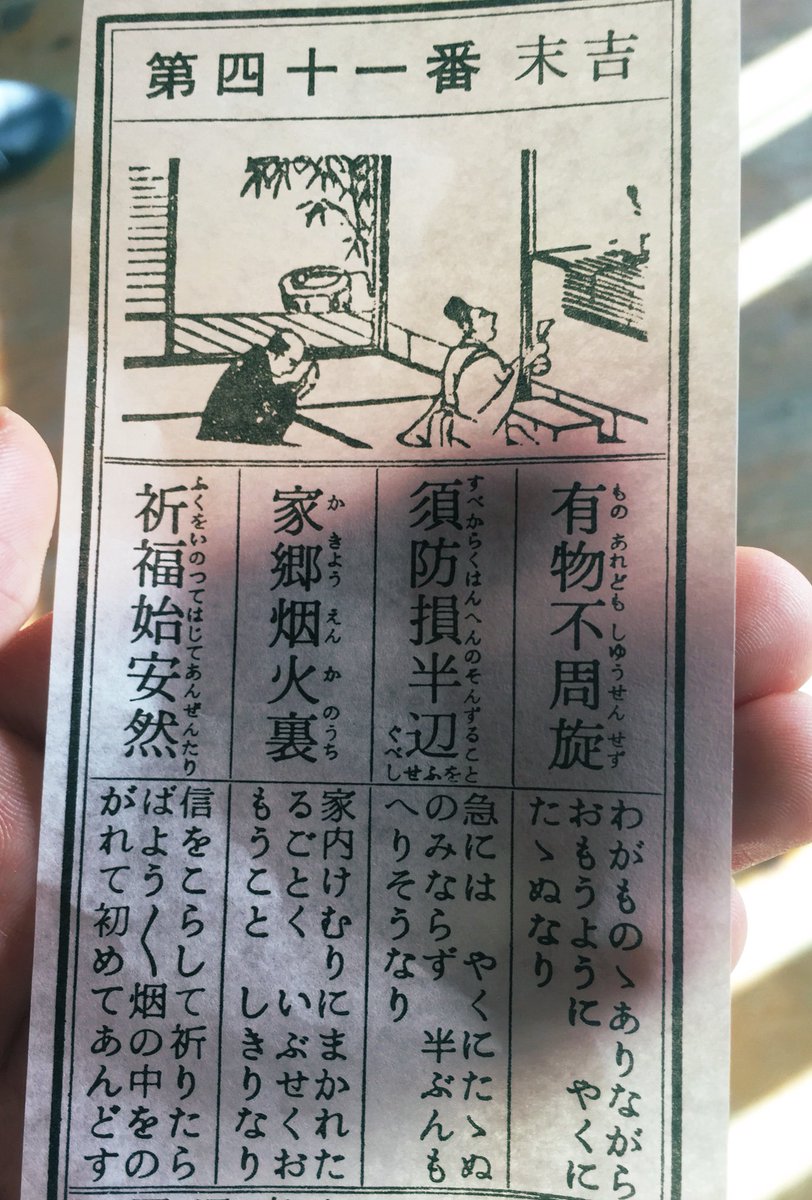 第四十一番 末吉
有物不周旋
もの あれども しゆうせん せず
須防損半辺
すべからくはんへんのそんずること
をふせ
ぐべし
家郷烟火裏
か きよう えん か のうち
祈福始安然
ふくをいのつてはじてあんぜんたり
わがものゝありながら
おもうように やくに
たゝぬなり
急には やくにたゝぬ
のみならず 半ぶんも
へりそうなり
家内けむりにまかれた
るごとく いぶせくお
もうこと しきりなり
信をこらして祈りたら
ばよう〱烟の中をの
がれて初めてあんどす